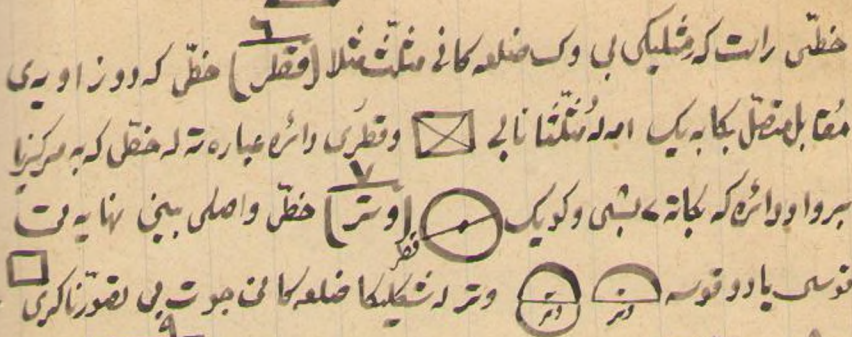 خطّی راست که مثلیکی بی وک ضلعه کانی مثلّث مثلا (٦ قطر) خطّی که دو زاویه‌ی
مقابل متصّل بکا به یک امه له مُثلّثا نابی و قطری دائره عباره ته له خطّی که به مرکزا
بروا و دائره که بکاته ٢ بشی وکو یک قطر (٧ وتر) خطّی واصلی بینی نهایه ت
قوسی یا دو قوسه وتر وتر وتر له شکلیکا ضلعه کانی جوت بی تصوّر ناکری